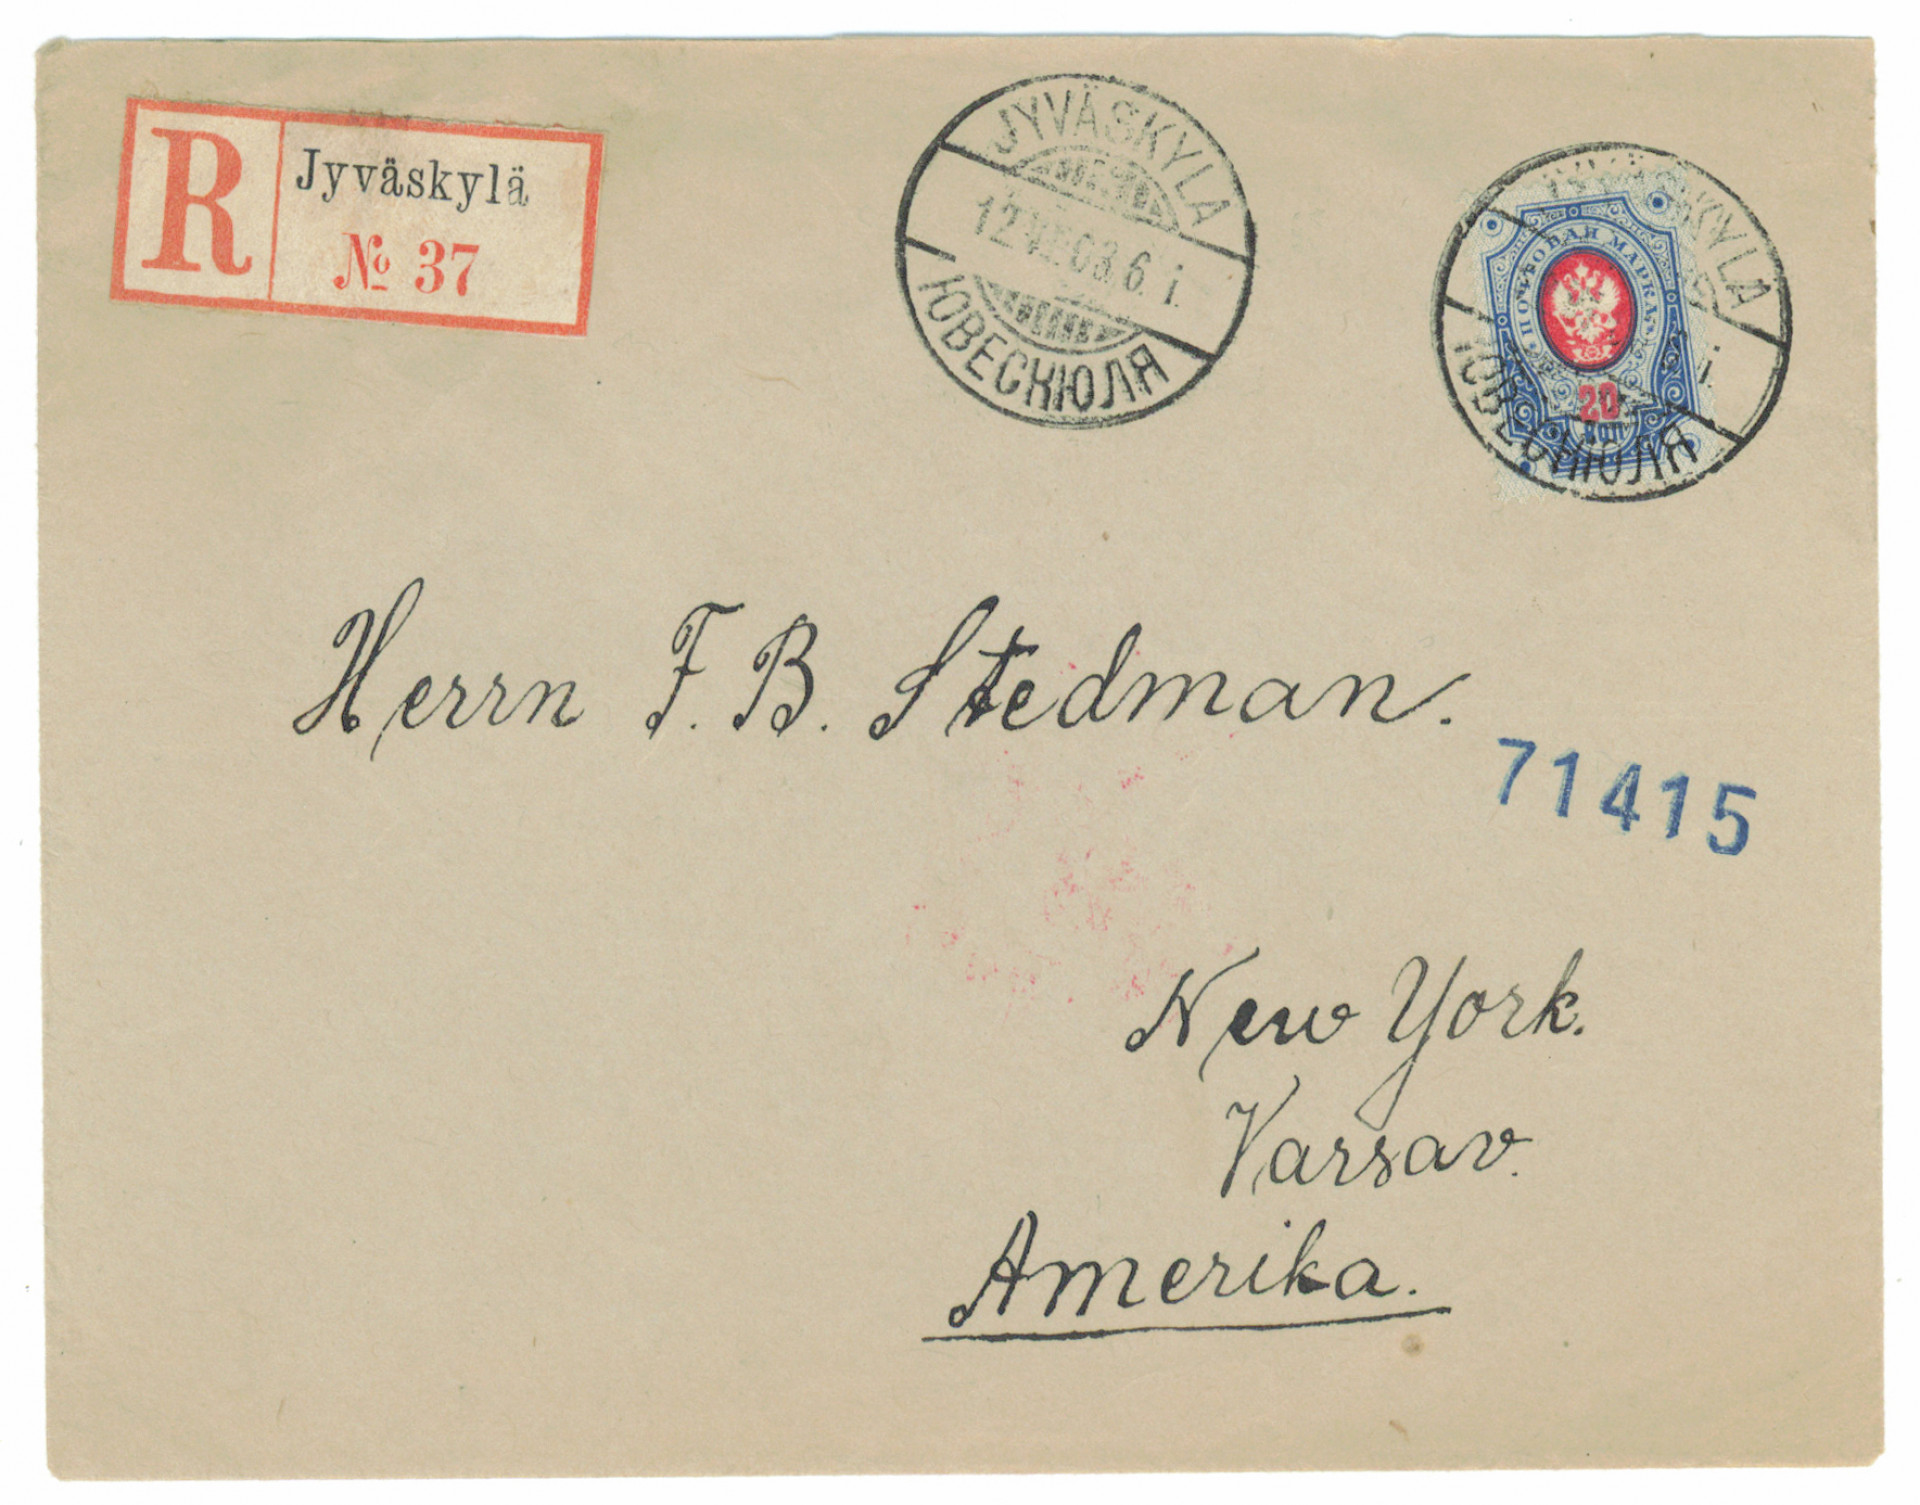 R
Jyväskylä
№ 37
JYVÄSKYLÄ
6. i.
ЮВЕСКЮЛЯ
JYVÄSKYLÄ
i.
ЮВЕСКЮЛЯ
ПОЧТОВАЯ МАРКА
20
КОП
Herrn F. B. Stedman.
71415
New York.
Varsav.
Amerika.